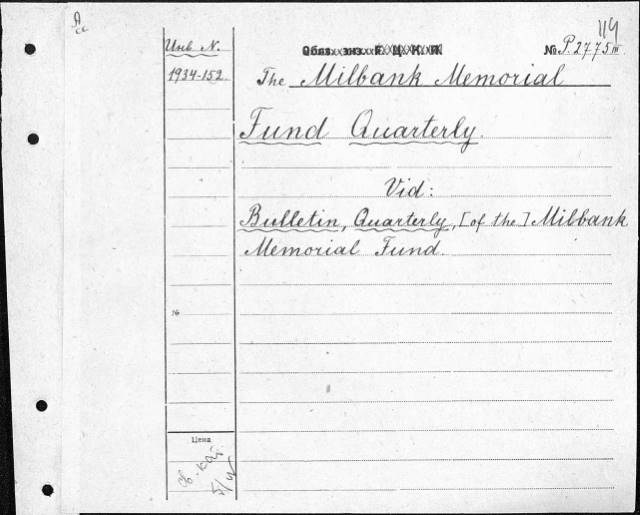 119
Инв. N.
Обяз. экз. Г. Ц. К. П.
№ P.2775 III
1934-152
The Milbank Memorial
Fund Quarterly.
Vid:
Bulletin, Quarterly, [of the] Milbank
Memorial Fund.
Цена